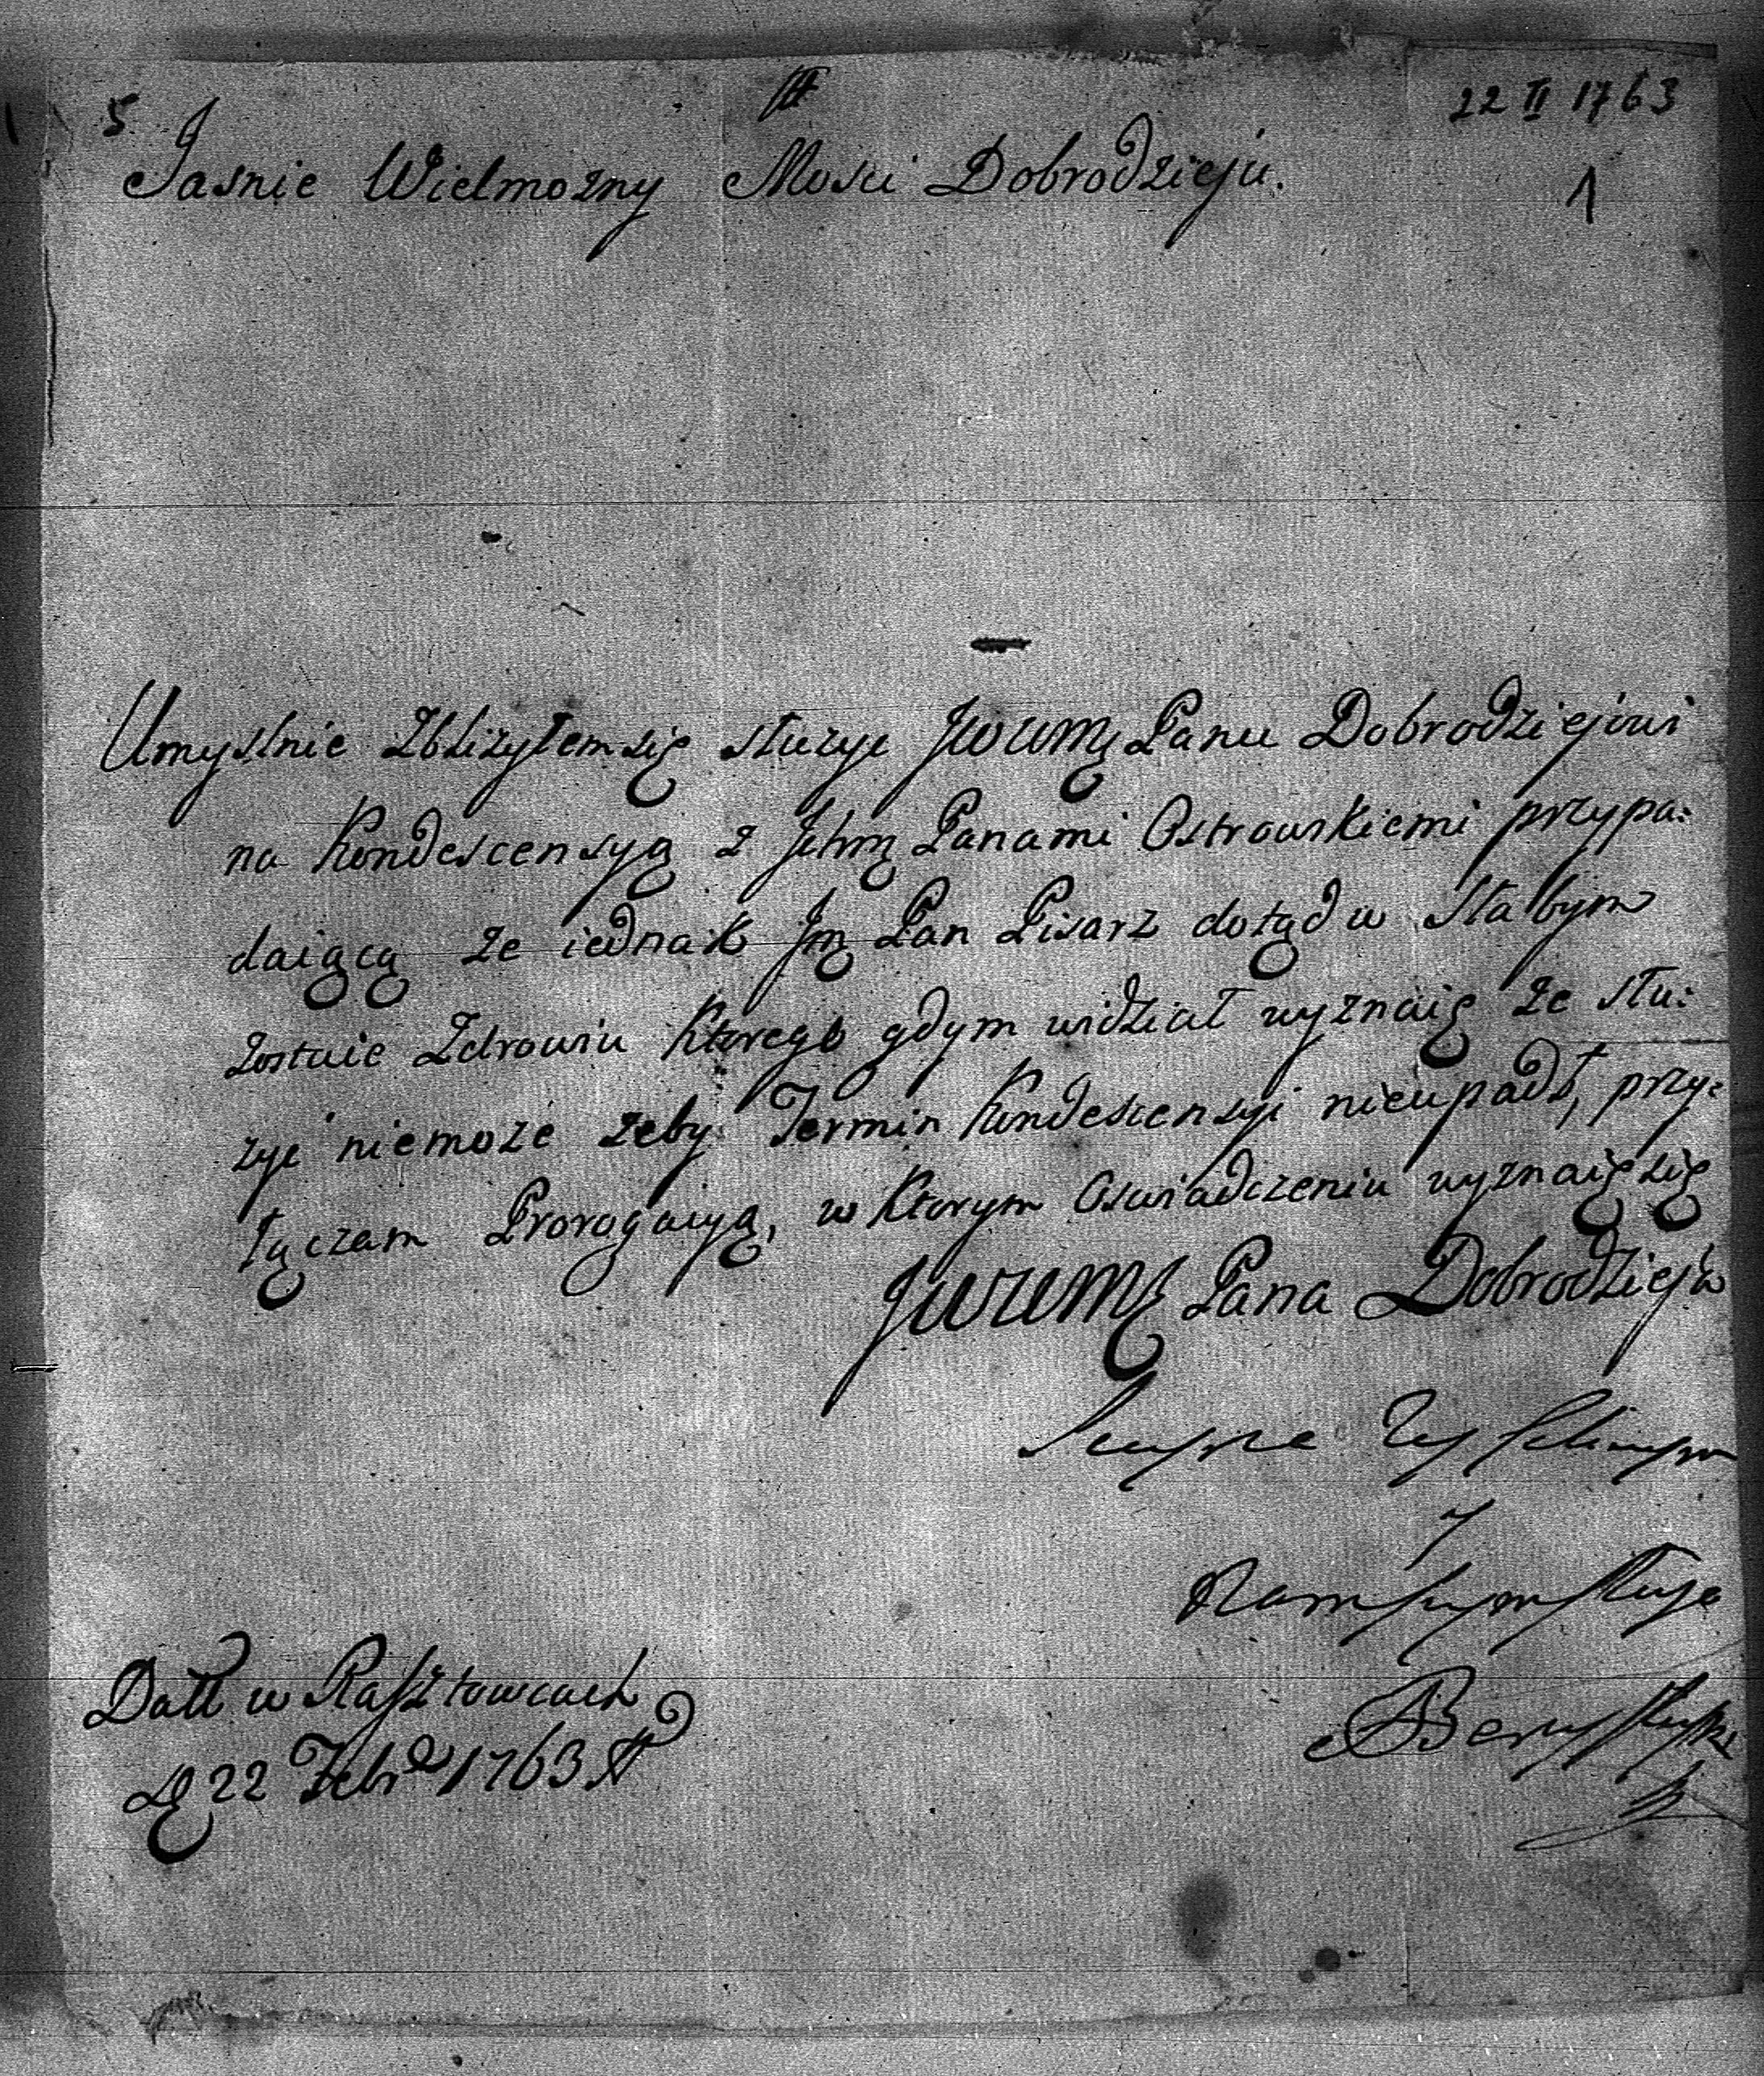 5
22 II 1763
1
Jasnie Wielmozny Mosci Dobrodzieju.
Umyslnie zblizyłem się słuzyc JWWMĘ Panu Dobrodziejowi
na Kondescensyą z Ichmę Panami Ostrowskiemi przypa:
daiącą ze iednak Jmę Pan Pisarz dotąd w Słabym
zostaie Zdrowiu Ktorego gdym widział wyznaię ze słu:
zyc niemoze zeby Termin Kondescensyi nieupadł, przy:
łączam Prorogacyą, w Ktorym Oswiadczeniu wyznaię się
JWWMę Pana Dobrodzieja
y
sługa
Datt w Rasztowcach
D 22 Febr 1763